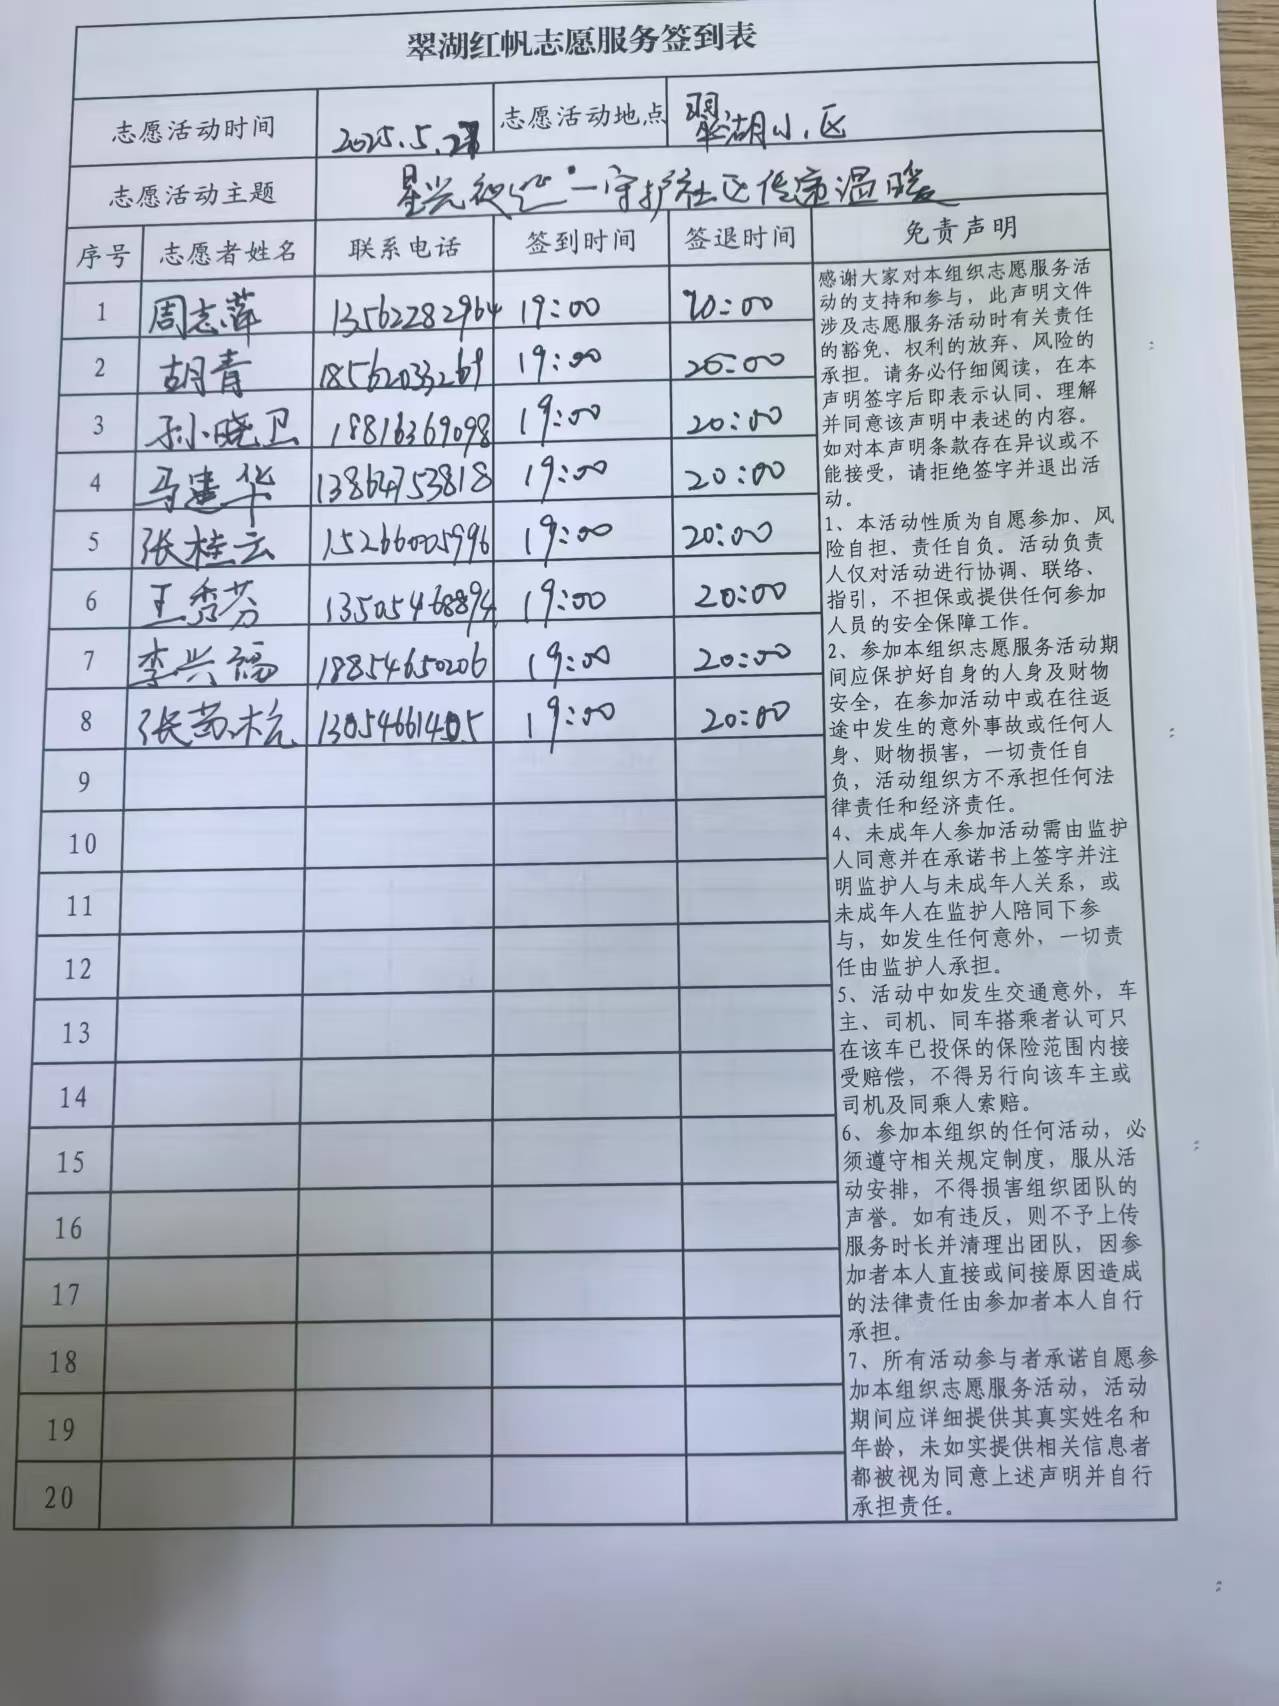 翠湖红帆志愿服务签到表
志愿活动时间 2025.5.21 志愿活动地点 翠湖小区
志愿活动主题 星光夜巡·一守护社区传递温暖
序号 志愿者姓名 联系电话 签到时间 签退时间 免责声明
1 周志萍 13562282964 19:00 20:00
2 胡青 18562033269 19:00 20:00
3 孙小晓卫 18816369098 19:00 20:00
4 马建华 13864753818 19:00 20:00
5 张桂云 15266005996 19:00 20:00
6 王秀芬 13505468894 19:00 20:00
7 李兴福 18854650206 19:00 20:00
8 张 13054661405 19:00 20:00
9
10
11
12
13
14
15
16
17
18
19
20
感谢大家对本组织志愿服务活
动的支持和参与，此声明文件
涉及志愿服务活动时有关责任
的豁免、权利的放弃、风险的
承担。请务必仔细阅读，在本
声明签字后即表示认同、理解
并同意该声明中表述的内容。
如对本声明条款存在异议或不
能接受，请拒绝签字并退出活
动。
1、本活动性质为自愿参加、风
险自担、责任自负。活动负责
人仅对活动进行协调、联络、
指引，不担保或提供任何参加
人员的安全保障工作。
2、参加本组织志愿服务活动期
间应保护好自身的人身及财物
安全，在参加活动中或在往返
途中发生的意外事故或任何人
身、财物损害，一切责任自
负，活动组织方不承担任何法
律责任和经济责任。
4、未成年人参加活动需由监护
人同意并在承诺书上签字并注
明监护人与未成年人关系，或
未成年人在监护人陪同下参
与，如发生任何意外，一切责
任由监护人承担。
5、活动中如发生交通意外，车
主、司机、同车搭乘者认可只
在该车已投保的保险范围内接
受赔偿，不得另行向该车主或
司机及同乘人索赔。
6、参加本组织的任何活动，必
须遵守相关规定制度，服从活
动安排，不得损害组织团队的
声誉。如有违反，则不予上传
服务时长并清理出团队，因参
加者本人直接或间接原因造成
的法律责任由参加者本人自行
承担。
7、所有活动参与者承诺自愿参
加本组织志愿服务活动，活动
期间应详细提供其真实姓名和
年龄，未如实提供相关信息者
都被视为同意上述声明并自行
承担责任。